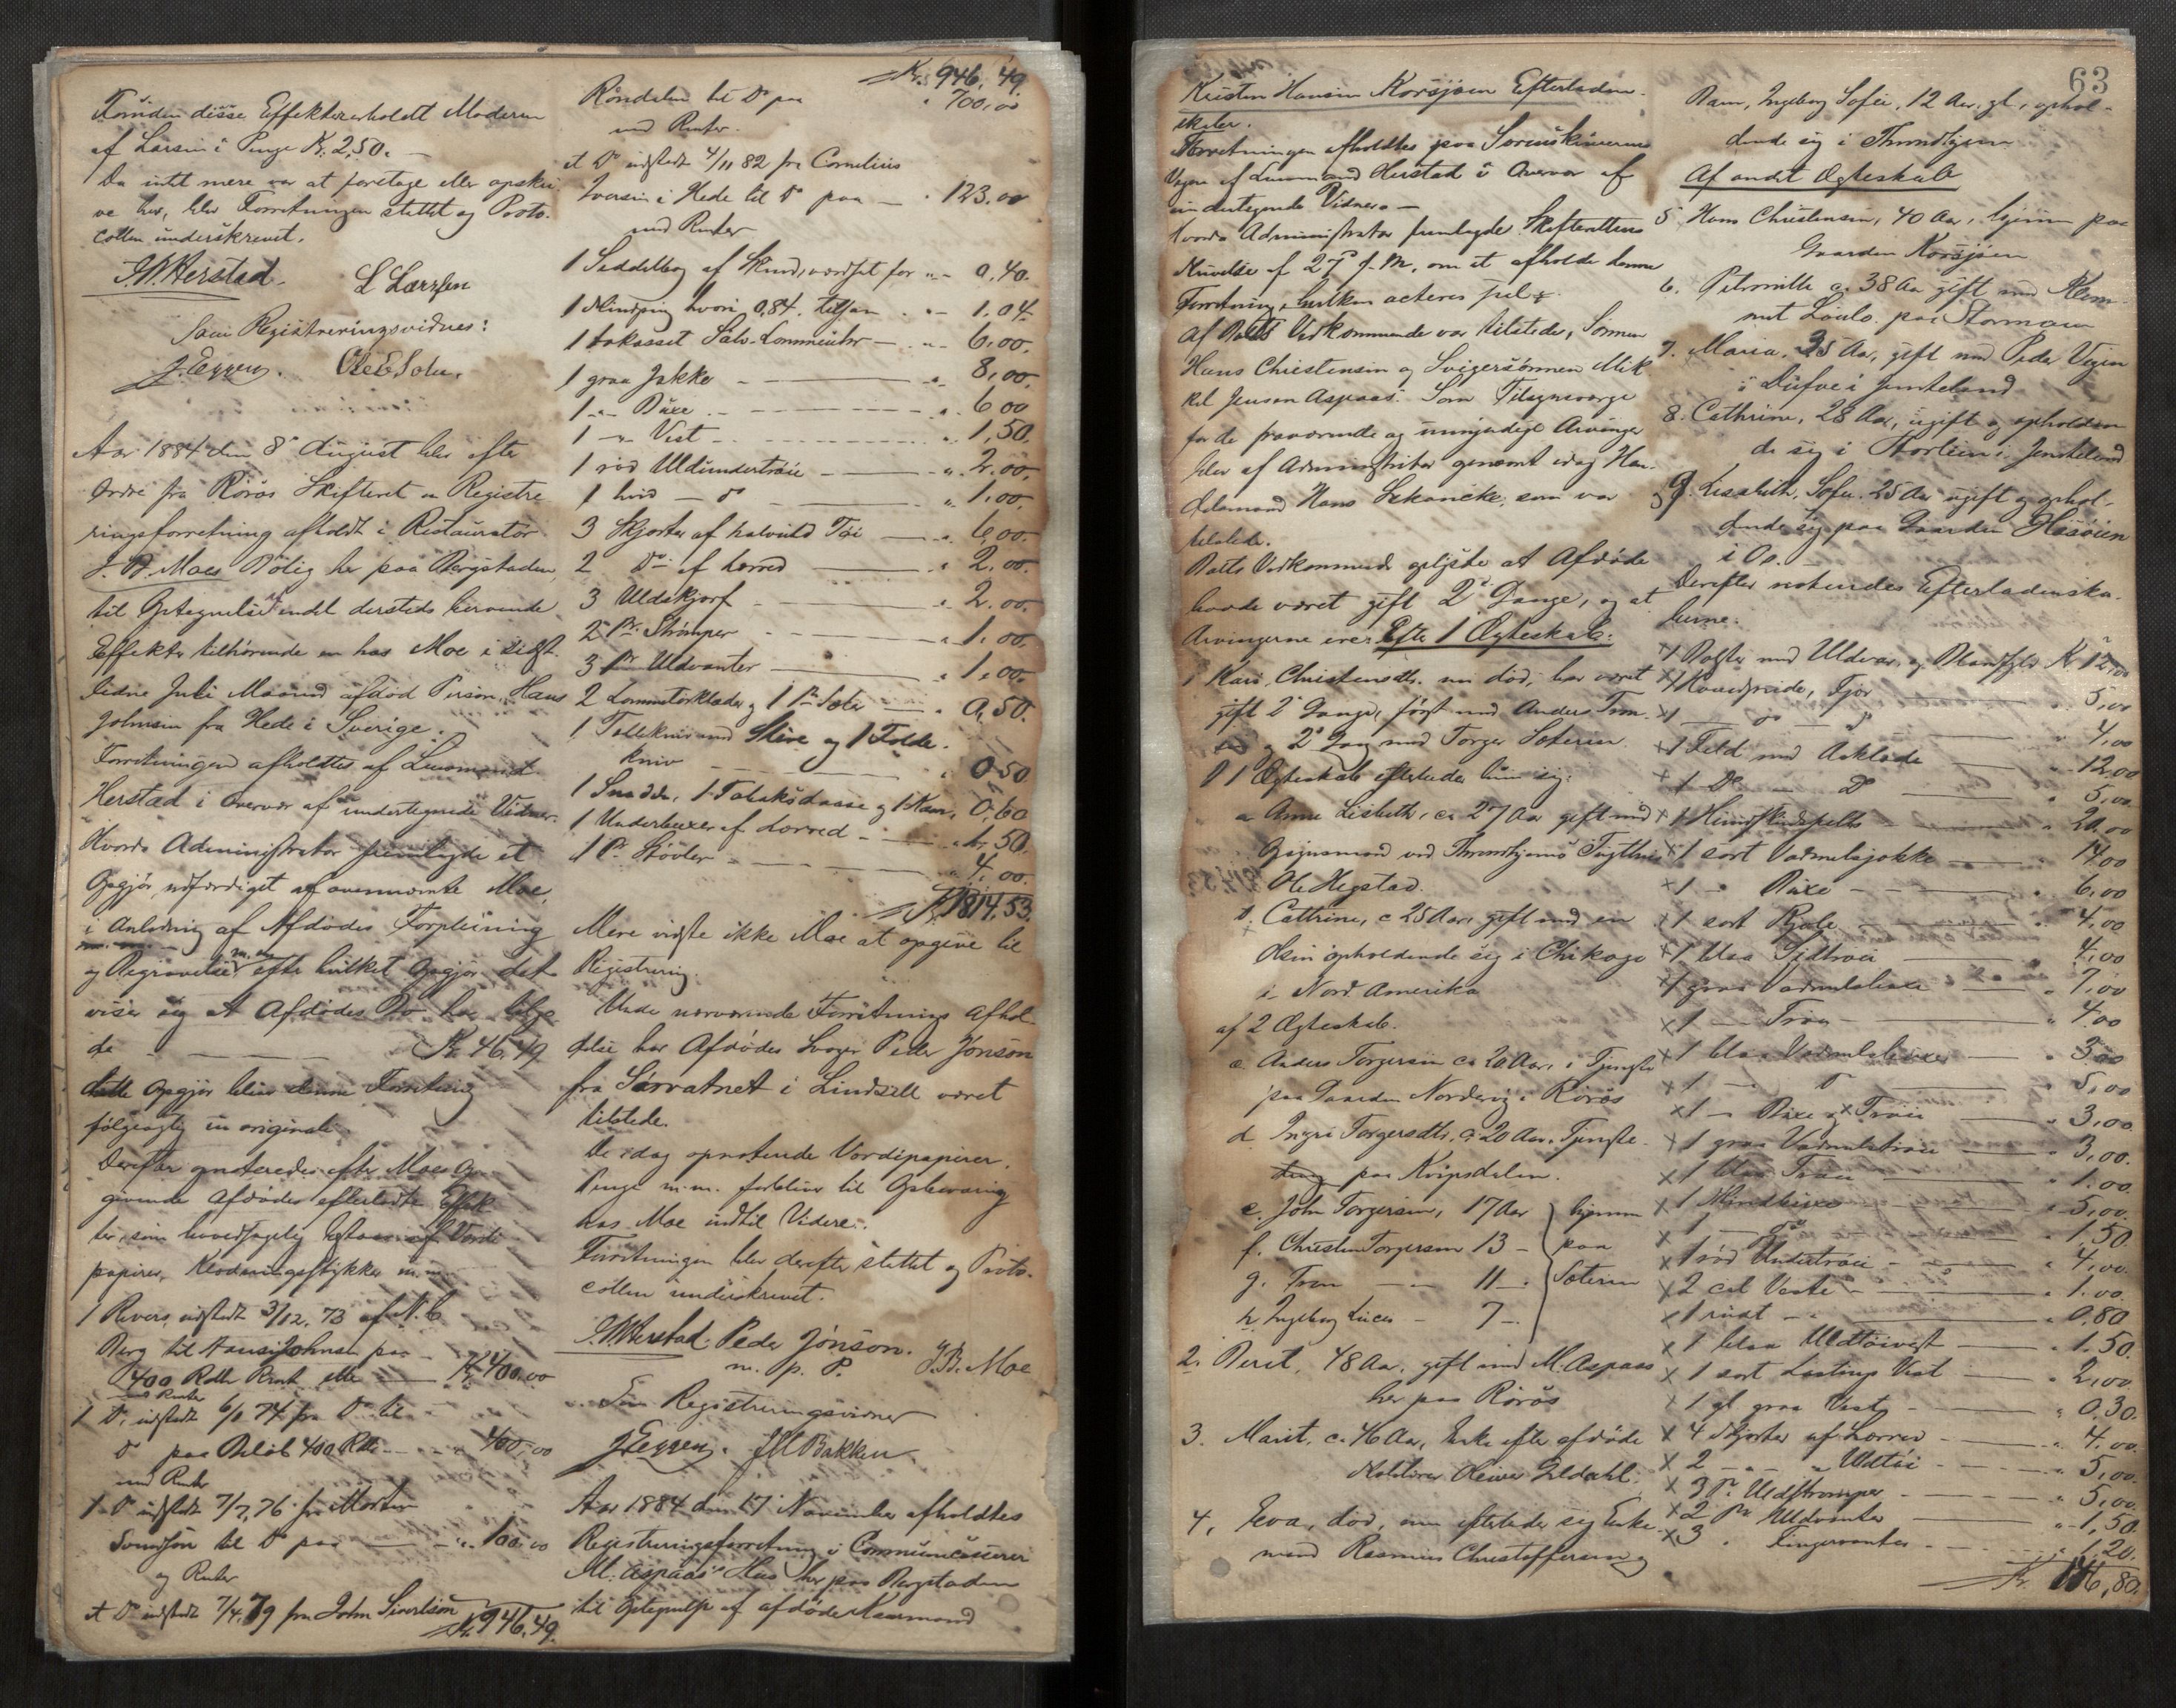 Foruden disse Effekter erholdt Moderen
af Larsen i Penge Kr. 2,50.
Da intet mere var at foretage eller opskri-
ve her, blev Forretningen sluttet og Proto-
collen underskrevet.
J. W. Herstad. L Larssen
Som Registreringsvidner:
J. Eggen. Ole E. Solu.
Aar 1884 den 8de August blev efter
Ordre fra Röros Skifteret en Registre
ringsforretning afholdt i Restauratör
J. B. Moes Bolig her paa Bergstaden,
til Optegnelse endel dersteds beroende
Effekter tilhørende en hos Moe i sidst-
ledne Juli Maaned afdöd Person, Hans
Johnsen fra Hede i Sverige.
Forretningen afholdtes af Lensmand
Herstad i Overvær af undertegnede Vidner.
Hvorda Administrator fremlagde et
Opgjör, udfærdiget af ovennævnte Moe,
i Anledning af Afdödes Forpleining
og Begravelse m. m. efter hvilket Opgjör det
viser sig at Afdödes Bo har tilgo
de — Kr. 46,49
dette Opgjör bliver denne Forretning
fölgeagtig in originali.
Derefter opnoteredes efter Moes Op-
givende Afdödes efterladte Effek-
ter, som hovedsagelig bestaar af Værdi
papirer, Klædningsstykker m.m.
1 Revers, udstedt 3/12, 73 af N. C
Berg til Hans Johnsen paa
400 Rdlr Rmt eller — Kr. 400.00
med Renter
1 Do udstedt 6/1 74 fra Do til
Do paa Belöb 400 Rdl — " 400,00
med Renter
1 Do udstedt 7/7, 76 fra Morten
Svendsen til Do paa — " 100,00
og Renter
et Do udstedt 7/4, 79 fra John Sivertsön
Kr. 946,49.
Kr. 946,49.
Röndalen til Do paa " 700,00
med Renter.
et Do udstedt 4/11 82 fra Cornelius
Iversen i Hede til Do paa — " 123.00
med Renter
1 Saddelbog af Skind, værdsat for " 0,40.
1 Skindpung hvori 0,84. tilsam " 1,04
1 Lommeuhr — " 6,00.
1 graa Jakke — " 8,00.
1 " Buxe — " 6,00
1 " Vest — " 1,50.
1 röd Uldundertröie — " 2.00,
1 hvid — Do — " 1.00.
3 Skjorter af halvuld Töi — " 6,00.
2 Do af Lærred — " 2.00.
3 Uldskjørf — " 2.00.
2 Pr. Strömper — " 1.00.
3 Pr Uldvanter — " 1,00.
2 Lommetörklæder og 1 Pr Seler — " 0,50.
1 Tolleknív med Slire og 1 Folde-
kniv — " 0,50
1 Snadde, 1 Tobaksdaase og 1 Kam, 0,60
1 Underbuxe af Lærred — " 1,50.
1 Pr Stövler — " 4,00.
Kr. 1814,53.
Mere vidste ikke Moe at opgive til
Registrering.
Under nærværende Forretnings Afhol-
delse har Afdödes Svoger Peder Jonson
fra Sörvatnet i Lindsell været
tilstede.
De idag opnoterede Værdipapirer,
Penge m.m. forbliver til Opbevaring
hos Moe indtil Videre.
Forretningen blev derefter sluttet og Proto-
collen underskrevet.
J. W. Herstad. Peder Jönson. J. B. Moe
m. p. P.
Som Registreringsvidner
J. Eggen. J H Bakken
Aar 1884 den 17 November afholdtes
Registreringsforretning i Commissionær
M. Aspaas's Hus her paa Bergstaden
til Optegnelse af afdöde Kaarmand
63
Kristen Hansen Korsjöen Efterladen-
skaber.
Forretningen afholdtes paa Sorenskriverens
Vegne af Lensmand Herstad i Overvær af
undertegnede Vidner. —
Hvorda Administrator fremlagde Skifterettens
Skrivelse af 27de f. M., om at afholde denne
Forretning, hvilken acteres
Af Boets Vedkommende var tilstede, Sönnen
Hans Christensen og Svigersönnen Mik
kel Jensen Aspaas. Som Tilsynsværge
for de fraværende og umyndige Arvinger
blev af Administrator genævnt idag Han-
delsmand Hans Schancke, som var
tilstede.
Boets Vedkommende oplyste at Afdöde
havde været gift 2de Gange, og at
Arvingerne ere: Efter 1 Ægteskab:
1 Kari, Christensdtr. nu död, har været
gift 2de Gange, först med Anders Tron-
og 2de Gang med Torger Sæteren.
I 1 Ægteskab efterlader hun sig:
a Anne Lisbeth, ca 27 Aar gift med
Opsynsmand ved Throndhjems Tugthus
Ole Hegstad.
b. Cathrine, c 25 Aar, gift med en
Olsen opholdende sig i Chikago
i Nord Amerika
af 2 Ægteskab.
c. Anders Torgersen ca 20 Aar, i Tjeneste
paa Gaarden Nordvig i Röros
d Ingri Torgersdtr, c. 20 Aar, Tjeneste-
paa Kvipsdalen.
e. John Torgersen, 17 Aar } hjemme
f. Christen Torgersen 13 — } paa
g. Tron — " — 11 — } Sæteren
h. Ingeborg Lucie — 7 —
2. Beret, 48 Aar, gift med M. Aspaas
her paa Röros
3. Marit, c. 46 Aar, Enke efter afdöde
Geldahl.
4. Eva, död, men efterlader sig Enke-
mand Rasmus Christoffersen og
Barn, Ingeborg Sofie, 12 Aar gl., ophol-
dende sig i Throndhjem
Af andet Ægteskab
5 Hans Christensen, 40 Aar, hjemme paa
Gaarden Korsjöen
6. Petronille c. 38 Aar gift med Klem-
met paa Stormoen
7. Maria, 35 Aar, gift med Peder
i Dufve i Jemteland
8. Cathrine, 28 Aar, ugift og opholden
de sig i Storlien i Jemteland
9. Lisabeth, Sofie, 25 Aar ugift og ophol-
dende sig paa Gaarden Haasöien
i Os.
Derefter noteredes Efterladenska-
berne:
x 1 Bolster med Uldvar og Blandfyld Kr 12,00
x 1 Hovedpude, Fjær — " 5,00
x 1 — Do — Do — " 4,00
x 1 Feld med Aaklæde — " 12,00
x 1 Do — Do — " 5,00.
x 1 Hundskindspels — " 20.00
x 1 sort Vadmelsjakke — " 14.00
x 1 " Buxe — " 6,00
x 1 sort Kjole — " 4,00
x 1 blaa Sidtröie — " 4,00
x 1 graa Vadmelsbuxe — " 7,00
x 1 — Tröie — " 4.00
x 1 blaa Vadmelsbuxe — " 3,00
x 1 — Do — " 5,00
x 1 — Buxe og Tröie — " 3,00.
x 1 graa Vadmelströie — " 3,00.
x 1 blaa Tröie — " 1.00.
x 1 Skindbuxe — " 5,00.
x 1 — Do — " 1,50
x 1 röd Undertröie — " 4,00.
x 2 Veste — " 1.00.
x 1 — " 0,80
x 1 blaa Uldtöivest — " 1.50.
x 1 sort Lastings Vest — " 2,00
x 1 gl graa Vest — " 0,30.
x 4 Skjorter af Lærred — " 4,00.
x 2 — " — " Uldtöi — " 5,00.
x 3 Pr Uldströmper — " 5,00.
x 2 Pr Uldvanter — " 1,50.
x 3 " Fingervanter — " 1,20.
Kr. 146,80.